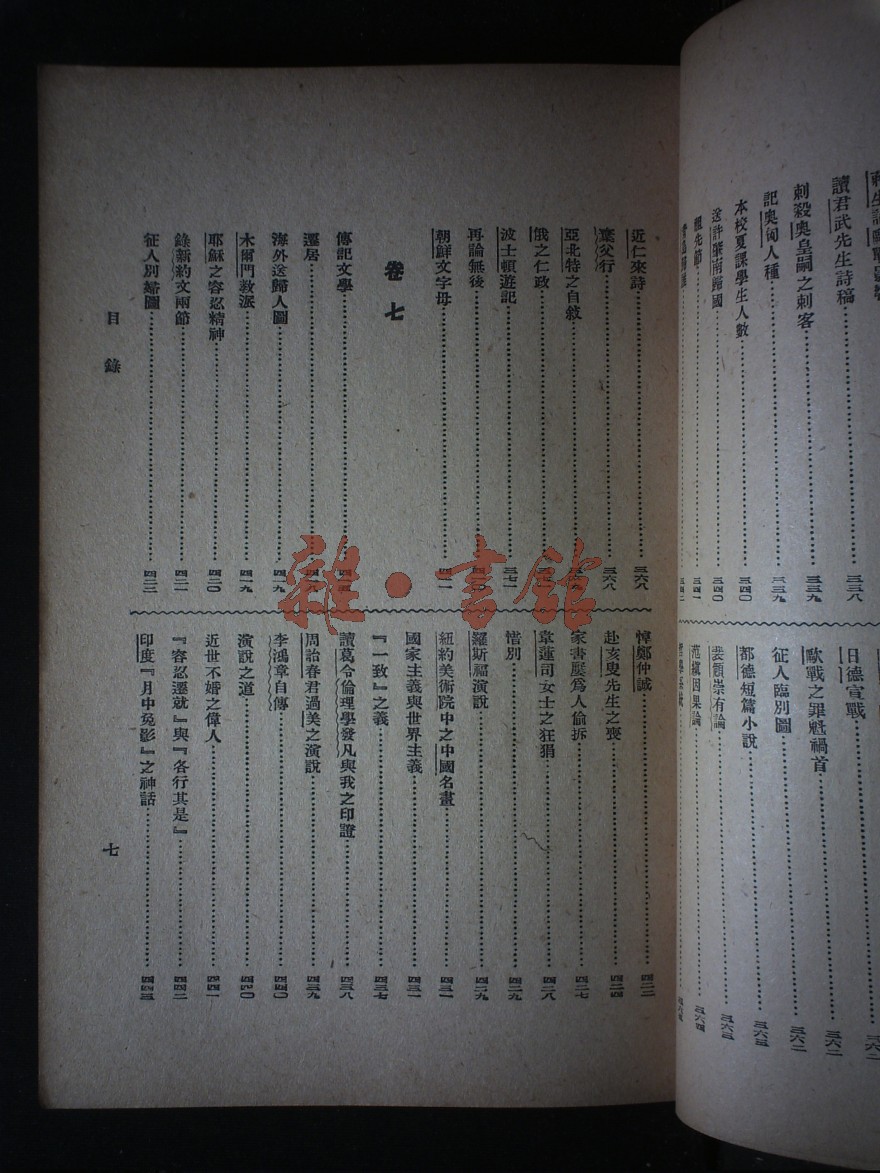 讀君武先生詩稿……三三八
刺殺奧皇嗣之刺客……三三九
記奧匈人種……三三九
本校夏課學生人數……三四〇
送許肇南歸國……三四〇
祖先節……三四一
日德宣戰……三六二
歐戰之罪魁禍首……三六二
征人臨別圖……三六二
都德短篇小說……三六三
裴頠崇有論……三六三
范縝因果論……三六四
近仁來詩……三六八
棄父行……三六八
亞北特之自敘
俄之仁政
波士頓遊記……三七一
再論無後
朝鮮文字母
卷七
傳記文學
遷居
海外送歸人圖……四一九
木爾門教派……四一九
耶穌之容忍精神……四二〇
錄新約文兩節……四二一
征人別婦圖……四二二
悼鄭仲誠……四二二
赴亥叟先生之喪……四二四
家書屢爲人偷拆……四二七
韋蓮司女士之狂狷……四二八
惜別……四二九
羅斯福演說……四二九
紐約美術院中之中國名畫……四三一
國家主義與世界主義……四三一
『一致』之義……四三七
讀葛令倫理學發凡與我之印證……四三八
周詒春君過美之演說……四三九
李鴻章自傳……四四〇
演說之道……四四〇
近世不婚之偉人……四四一
『容忍遷就』與『各行其是』……四四二
印度『月中兔影』之神話……四四三
目錄
七
雜·書館